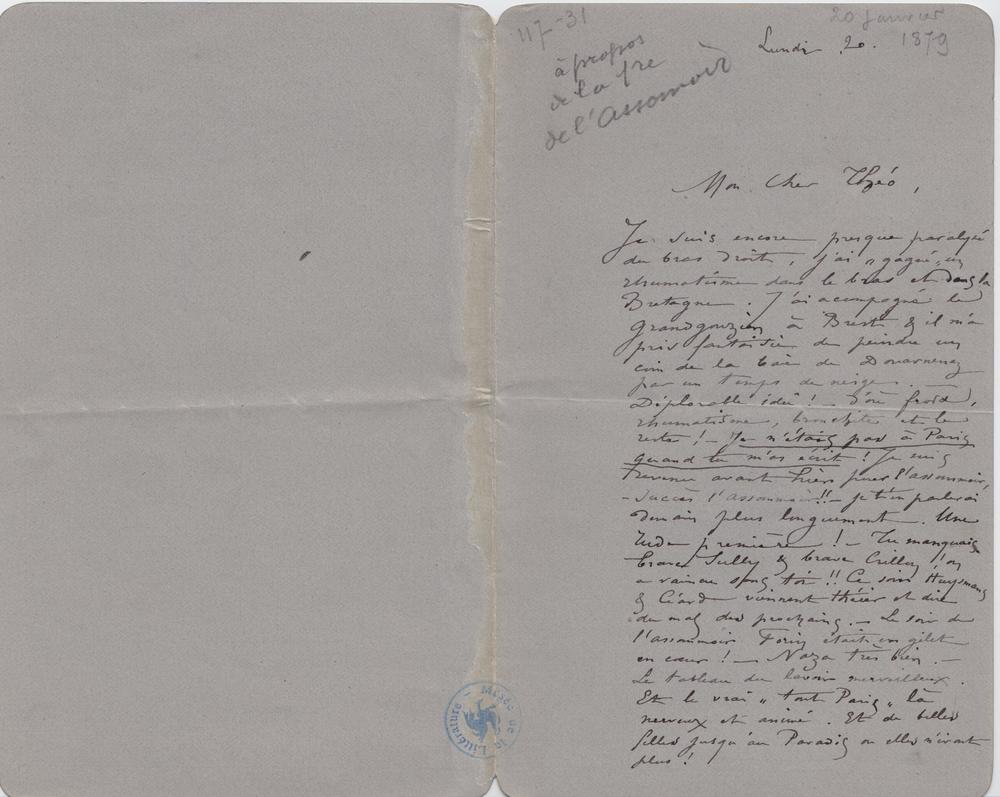 117-31
20 Janvier
1879
à propos
de la 1re
de l'Assommoir
Lundi 20.
Mon Cher Théo,
Je suis encore presque paralysé
du bras droit, j'ai "gagné" un
rhumatisme dans le bras et dans la
Bretagne. J'ai accompagné le
Grandgouzier à Brest & il m'a
pris fantaisie de peindre un
coin de la baie de Douarnenez
par un temps de neige.
Déplorable idée! – D'où froid,
rhumatisme, bronchite et le
reste! – Je n'étais pas à Paris
quand tu m'as écrit! Je suis
revenu avant hier pour l'assommoir,
– Succès l'assommoir!! – Je t'en parlerai
demain plus longuement. Une
rude première! – Tu manquais
brave Sully & brave Crillon! on
a vaincu sans toi!! Ce soir Huysmans
& Céard viennent théier et dire
du mal des prochains. – Le soir de
l'assommoir Forin était en gilet
en cœur! – Naza très bien. –
Le tableau du lavoir merveilleux.
Et le vrai "tout Paris" là
nerveux et animé. Et de belles
filles jusqu'au Paradis où elles n'iront
plus!
Musée de la Littérature